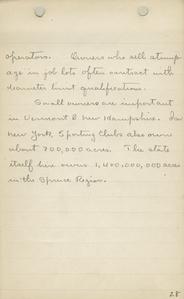 operators. Owners who sell stump-
age in job lots often contract with
diameter limit qualifications.
Small owners are important
in Vermont & New Hampshire. In
New York Sporting Clubs also own
about 700,000 acres. The state
itself here owns 1,400,000,000 acres
in the Spruce Region.
28